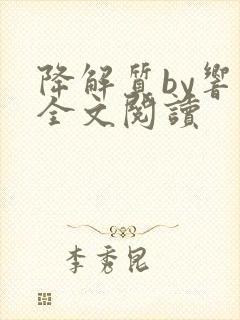 降解質by響
全文閱讀
李秀昆